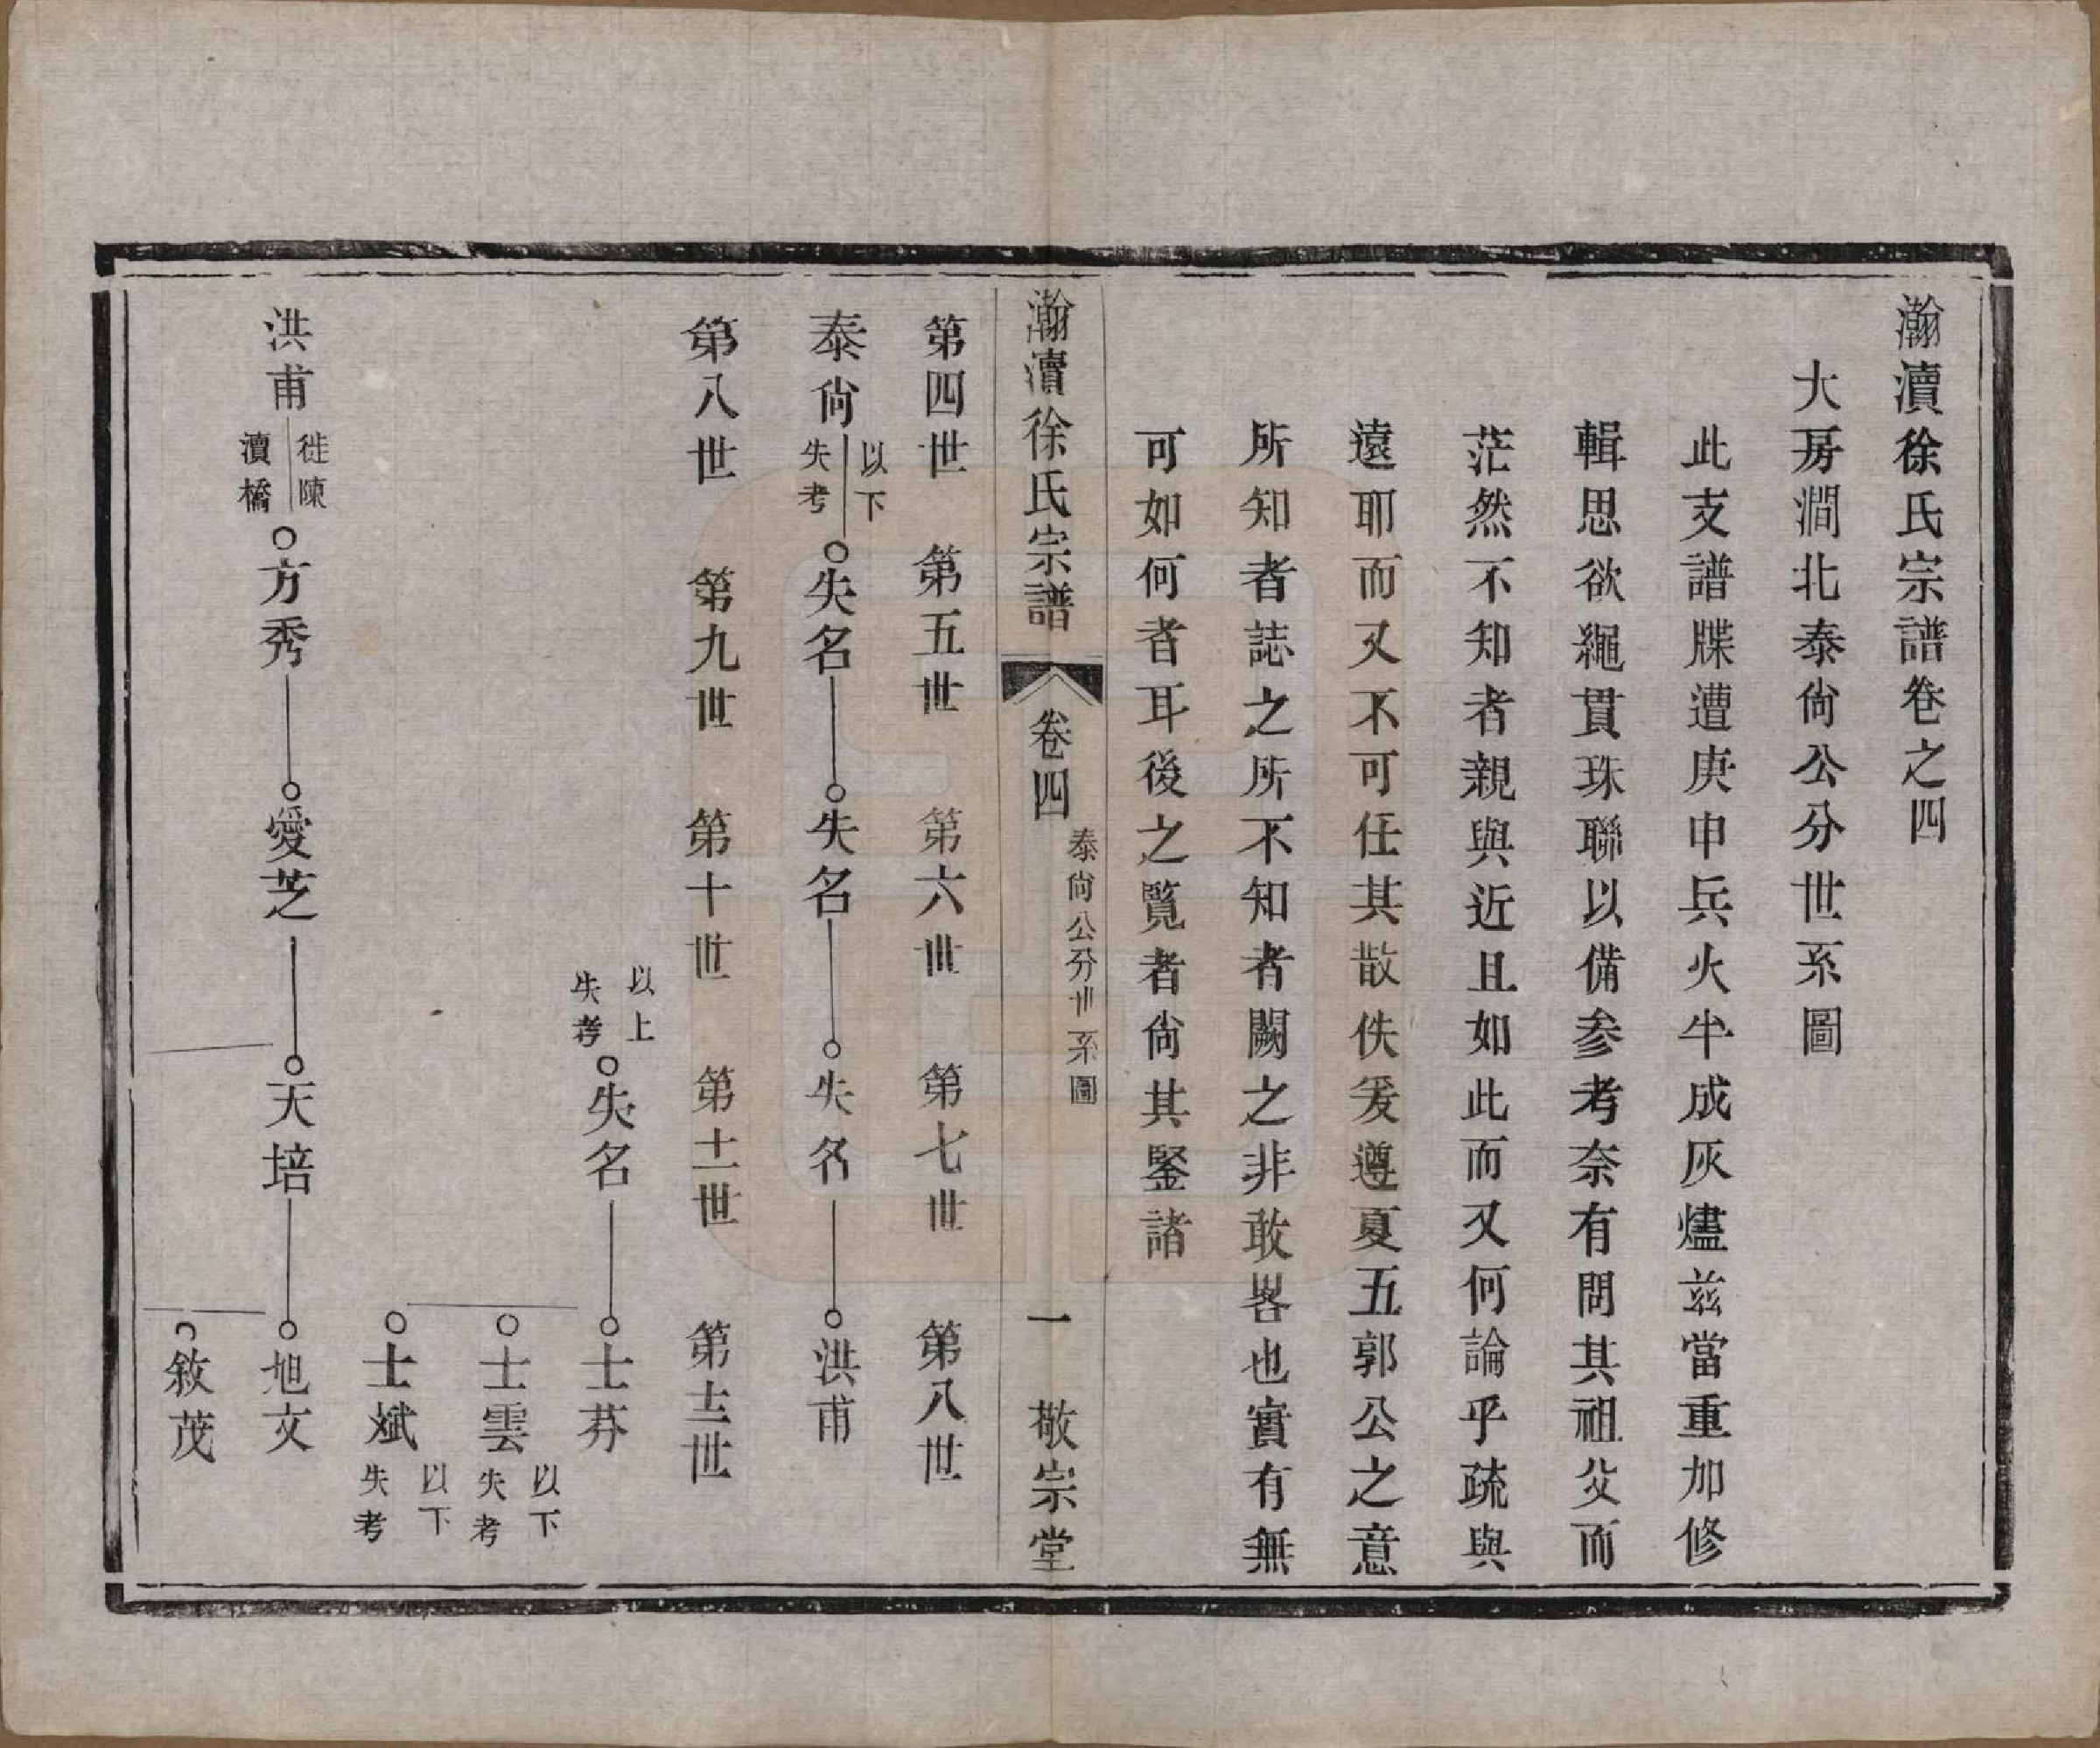 瀚瀆徐氏宗譜卷之四
大房澗北泰尙公分世系圖
此支譜牒遭庚申兵火半成灰燼兹當重加修
輯思欲繩貫珠聯以備參考奈有問其祖父而
茫然不知者親與近且如此而又何論乎疏與
遠耶而又不可任其散佚爰遵夏五郭公之意
所知者誌之所不知者闕之非敢畧也實有無
可如何者耳後之覽者尙其鑒諸
瀚瀆徐氏宗譜 卷四 泰尙公分世系圖 一 敬宗堂
第四世 第五世 第六世 第七世 第八世
泰尙 以下失考 失名 失名 失名 洪甫
第八世 第九世 第十世 第十一世 第十二世
以上失考 失名 士芬
士雲 以下失考
士斌 以下失考
洪甫 徙陳瀆橋 方秀 愛芝 天培 旭文
敘茂